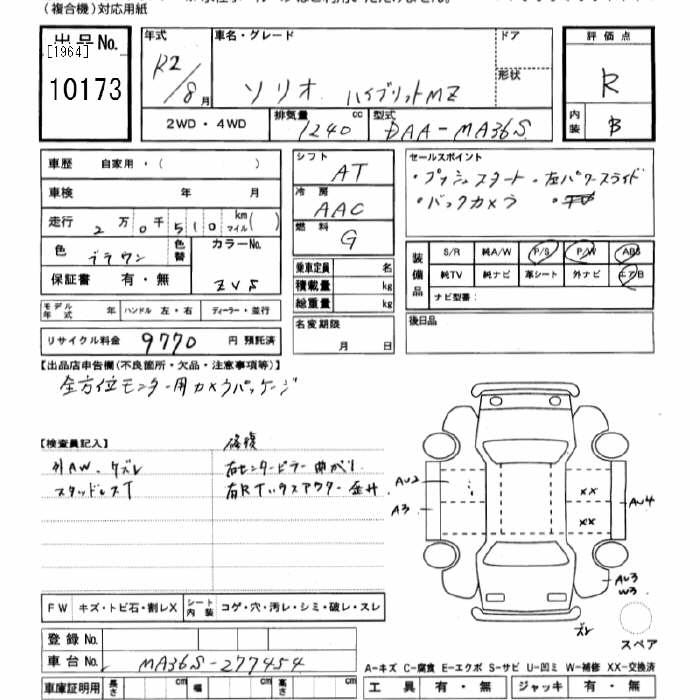 (複合機)対応用紙
出品No.
[1964]
10173
年式
R2/8月
車名・グレード
ソリオ ハイブリットMZ
ドア
形状
評価点
R
内装
B
2WD・4WD
排気量
1240cc
型式
DAA-MA36S
車歴 自家用・( )
車検 年 月
走行 2万0千510km マイル( )
色 ブラウン
色替
カラーNo.
ZV5
保証書 有・無
シフト AT
冷房 AAC
燃料 G
乗車定員 名
積載量 kg
総重量 kg
名変期限
月 日
セールスポイント
・プッシュスタート・左パワースライド
・バックカメラ
装備品
S/R 純A/W P/S P/W ABS
純TV 純ナビ 革シート 外ナビ エアB
ナビ型番:
後日品
モデル年式 年 ハンドル 左・右 ディーラー・並行
リサイクル料金 9770 円 預託済
【出品店申告欄(不良箇所・欠品・注意事項等)】
全方位モニター用カメラパッケージ
【検査員記入】
修復
外AW、ケズレ 右センターピラー曲がり
スタッドレスT 右RTハウスアウター
AU2
A3
XX
XX
AU4
AU3
W3
ズレ
スペア
FW キズ・トビ石・割レX シート内装 コゲ・穴・汚レ・シミ・破レ・スレ
登録No.
車台No. MA36S-277454
車庫証明用 長さ cm 幅 cm 高さ cm
A-キズ C-腐食 E-エクボ S-サビ U-凹ミ W-補修 XX-交換済
工具 有・無 ジャッキ 有・無